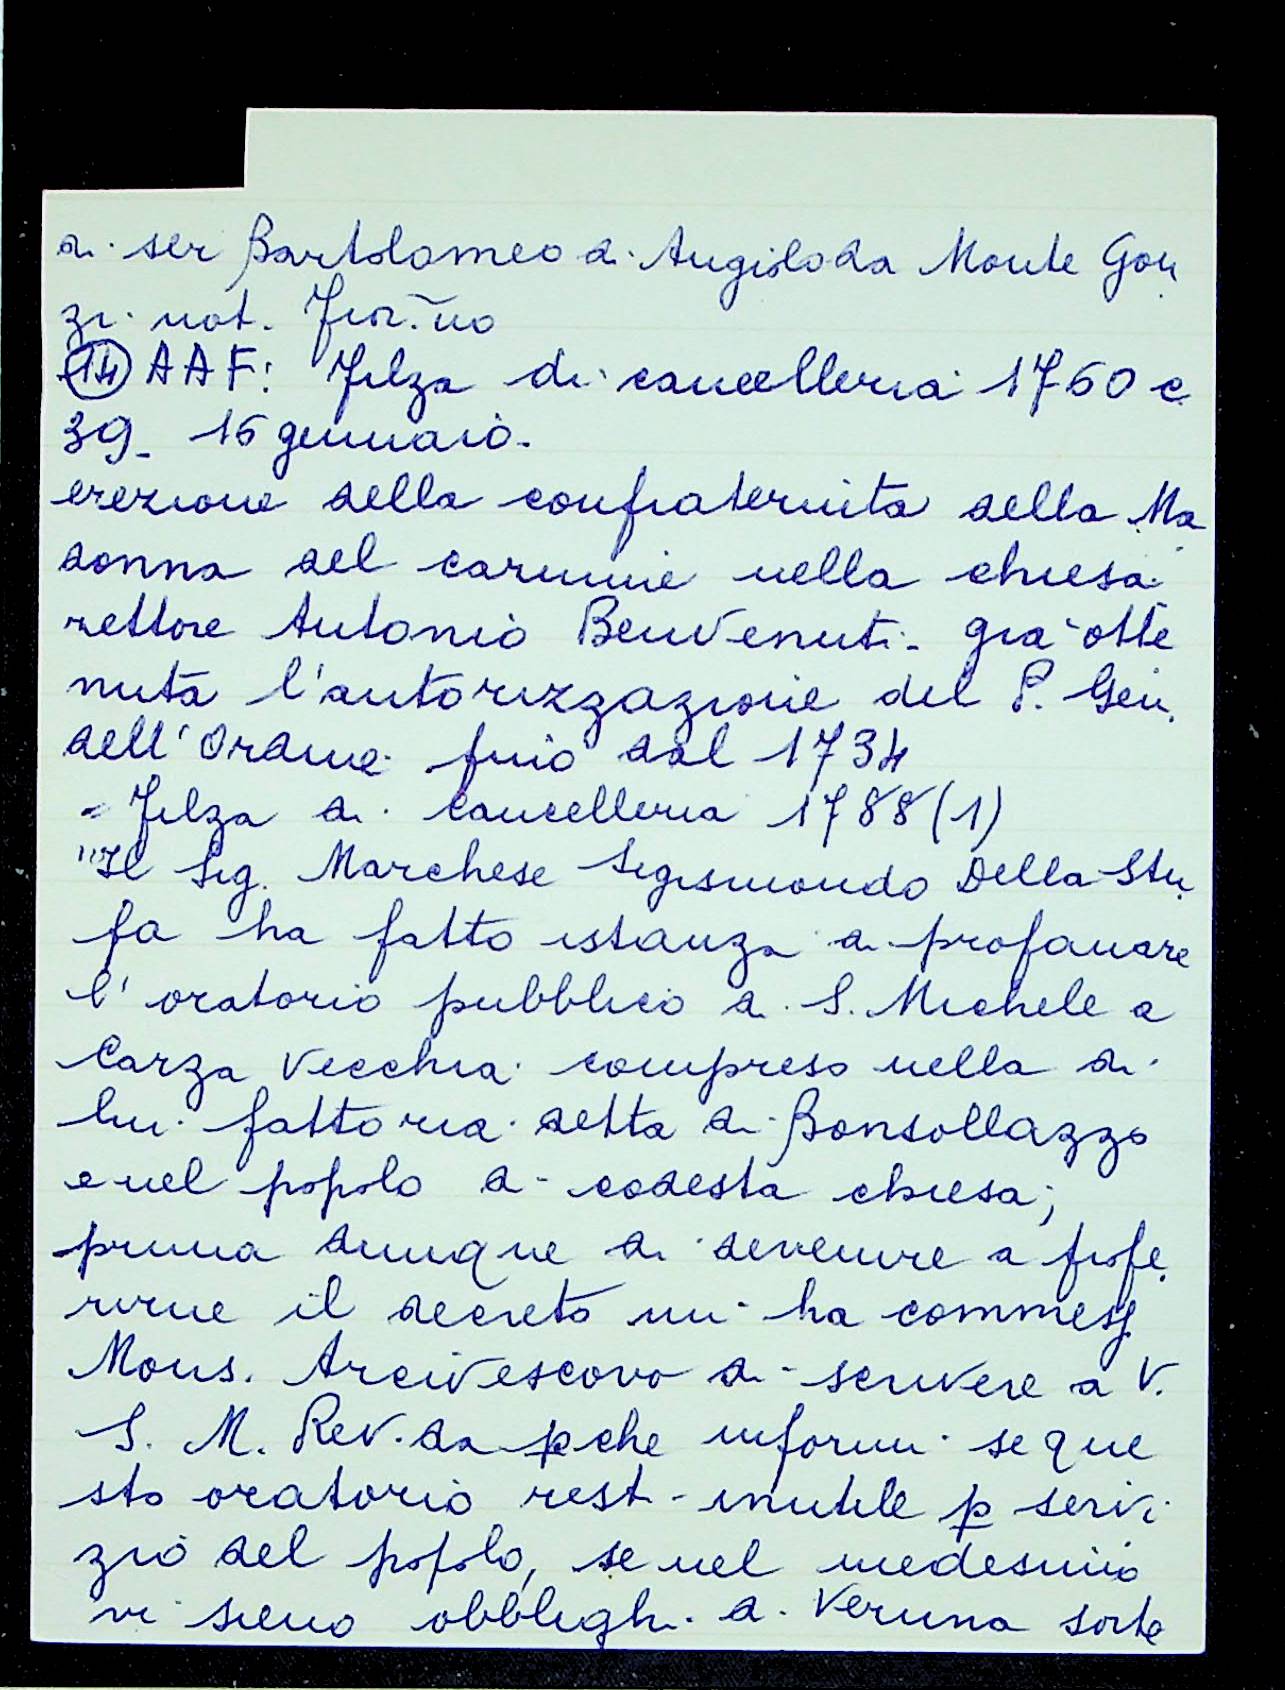 di ser Bartolomeo di Angiolo da Monte Gon
zi not. Fior.no
(14) AAF: Filza di cancelleria 1760 c.
39_ 16 gennaio.
erezione della confraternita della Ma
donna del carmine nella chiesa.
rettore Antonio Benvenuti. già otte
nuta l'autorizzazione del P. Gen.
dell'Ordine fino dal 1734
= Filza di Cancelleria 1788(1)
"Il Sig. Marchese Sigismondo Della Stu
fa ha fatto istanza di profanare
l'oratorio pubblico di S. Michele a
Carza Vecchia compreso nella di
lui fattoria detta di Bonsollazzo
e nel popolo di codesta chiesa;
prima dunque di devenire a profe
rirne il decreto mi ha commess
Mons. Arcivescovo di scrivere a V.
S. M. Rev.da pche informi se que
sto oratorio resti inutile p servi
zio del popolo, se nel medesimo
vi sieno obblighi di veruna sorte